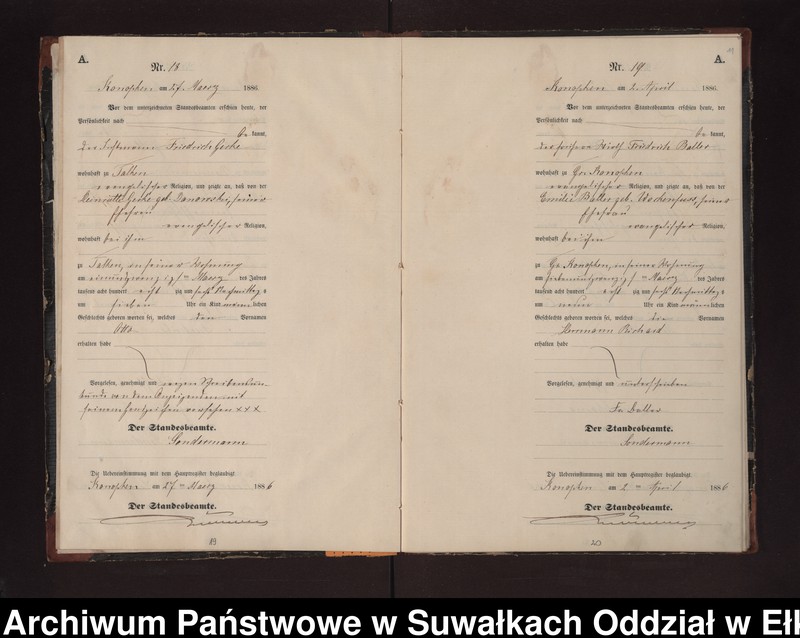 A.
Nr. 18
Konopken am 27. Maerz 1886.
Vor dem unterzeichneten Standesbeamten erschien heute, der
Persönlichkeit nach
be kannt,
der Friedrich
wohnhaft zu Talken
evangelischer Religion, und zeigte an, daß von der
geb. seiner
Ehefrau
evangelischer Religion,
wohnhaft bei ihm
zu Talken, in seiner Wohnung
am Maerz des Jahres
tausend acht hundert acht zig und sechs Nachmittags
um sieben Uhr ein Kind männlichen
Geschlechts geboren worden sei, welches den Vornamen
Otto
erhalten habe
Vorgelesen, genehmigt und wegen Schreibens
von dem Anzeigenden mit
seinem Handzeichen versehen XXX
Der Standesbeamte.
Sondermann
Die Uebereinstimmung mit dem Hauptregister beglaubigt.
Konopken am 27. Maerz 1886
Der Standesbeamte.
19
A.
Nr. 19
Konopken am 2. April 1886.
Vor dem unterzeichneten Standesbeamten erschien heute, der
Persönlichkeit nach
be kannt,
der Wirth Friedrich Baller
wohnhaft zu Gr. Konopken
evangelischer Religion, und zeigte an, daß von der
Emilie Baller geb. seiner
Ehefrau
evangelischer Religion,
wohnhaft bei ihm
zu Gr. Konopken, in seiner Wohnung
am Maerz des Jahres
tausend acht hundert acht zig und sechs Nachmittags
um neun Uhr ein Kind männlichen
Geschlechts geboren worden sei, welches die Vornamen
Hermann Richard
erhalten habe
Vorgelesen, genehmigt und unterschrieben
Fr. Baller
Der Standesbeamte.
Sondermann
Die Uebereinstimmung mit dem Hauptregister beglaubigt.
Konopken am 2. April 1886
Der Standesbeamte.
20
Archiwum Państwowe w Suwałkach Oddział w Eł